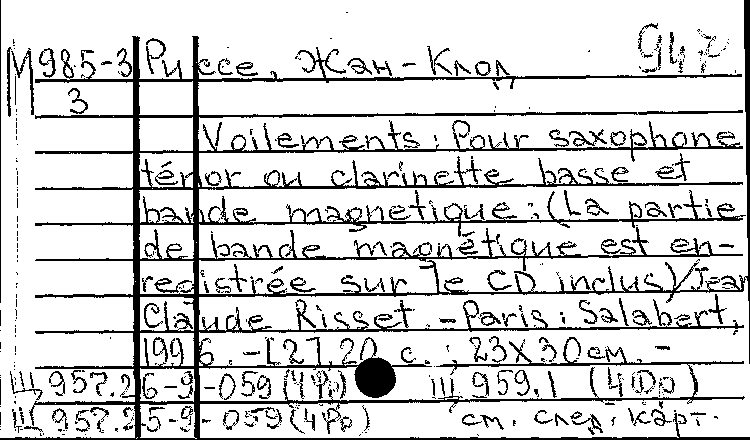 М 985-3 Риссе, Жан-Клод 947
3
Voilements: Pour saxophone
ténor ou clarinette basse et
bande magnetique: (La partie
de bande magnétique est en-
registrée sur le CD inclus)/Jean
Claude Risset. - Paris: Salabert,
1996. - [2], 20 с.; 23х30см. -
Щ 957.26-9-059 (4Фр) Щ 959.1 (4Фр)
Щ 957.25-9-059 (4Фр) см. след. карт.